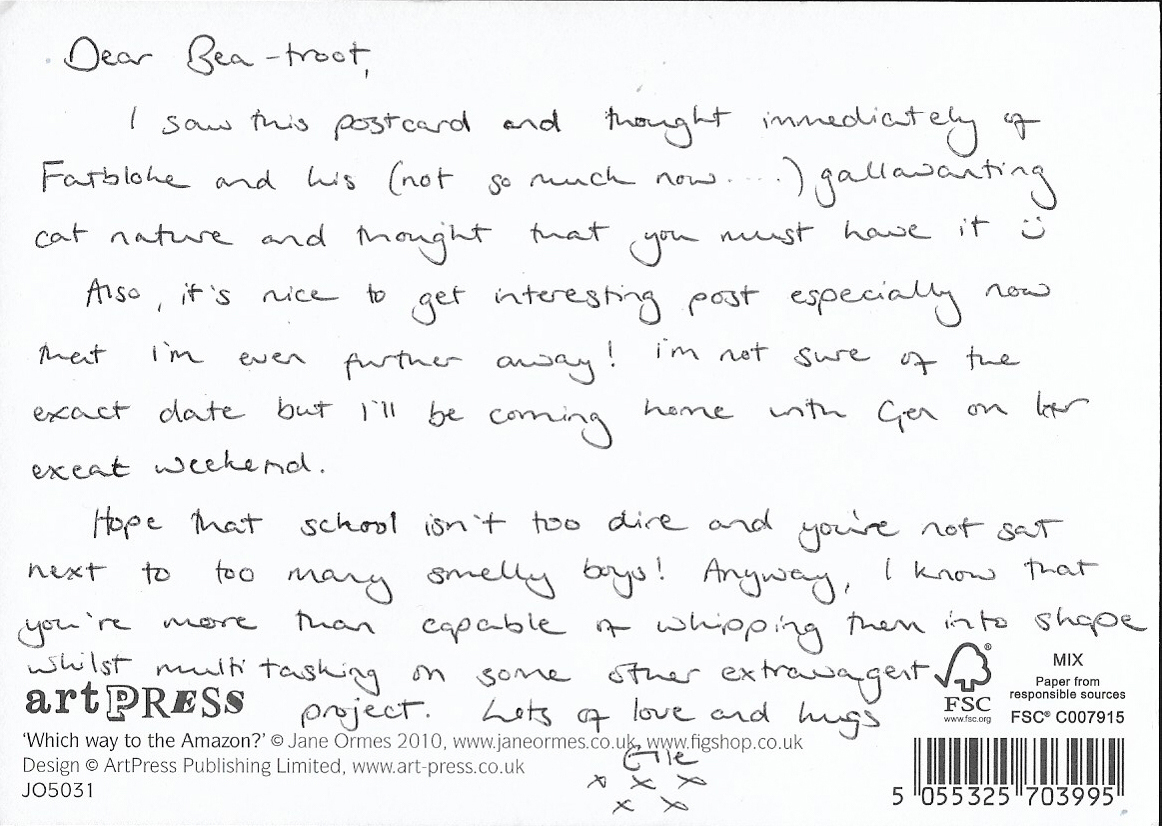 Dear Bea-troot,
I saw this postcard and thought immediately of
Fatbloke and his (not so much now.....) gallavanting
cat nature and thought that you must have it ü
Also, it's nice to get interesting post especially now
that I'm even further away! i'm not sure of the
exact date but I'll be coming home with Gen on her
exeat weekend.
Hope that school isn't too dire and you're not sat
next to too many smelly boys! Anyway, I know that
you're more than capable of whipping them into shape
whilst multi tasking on some other extravagent
project. Lots of love and hugs
Elle
x x x
x x
artPRESS
'Which way to the Amazon?' © Jane Ormes 2010, www.janeormes.co.uk, www.figshop.co.uk
Design © ArtPress Publishing Limited, www.art-press.co.uk
JO5031
®
FSC
www.fsc.org
MIX
Paper from
responsible sources
FSC® C007915
5 055325 703995